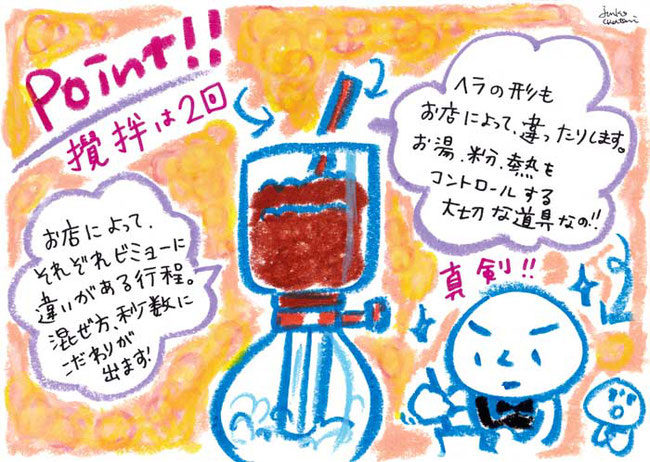 Point!!
攪拌は2回
ヘラの形も
お店によって、違ったりします。
お湯、粉、熱を
コントロールする
大切な道具なの!!
お店によって、
それぞれビミョーに
違いがある行程。
混ぜ方、秒数に
こだわりが
出ます!
真剣!!